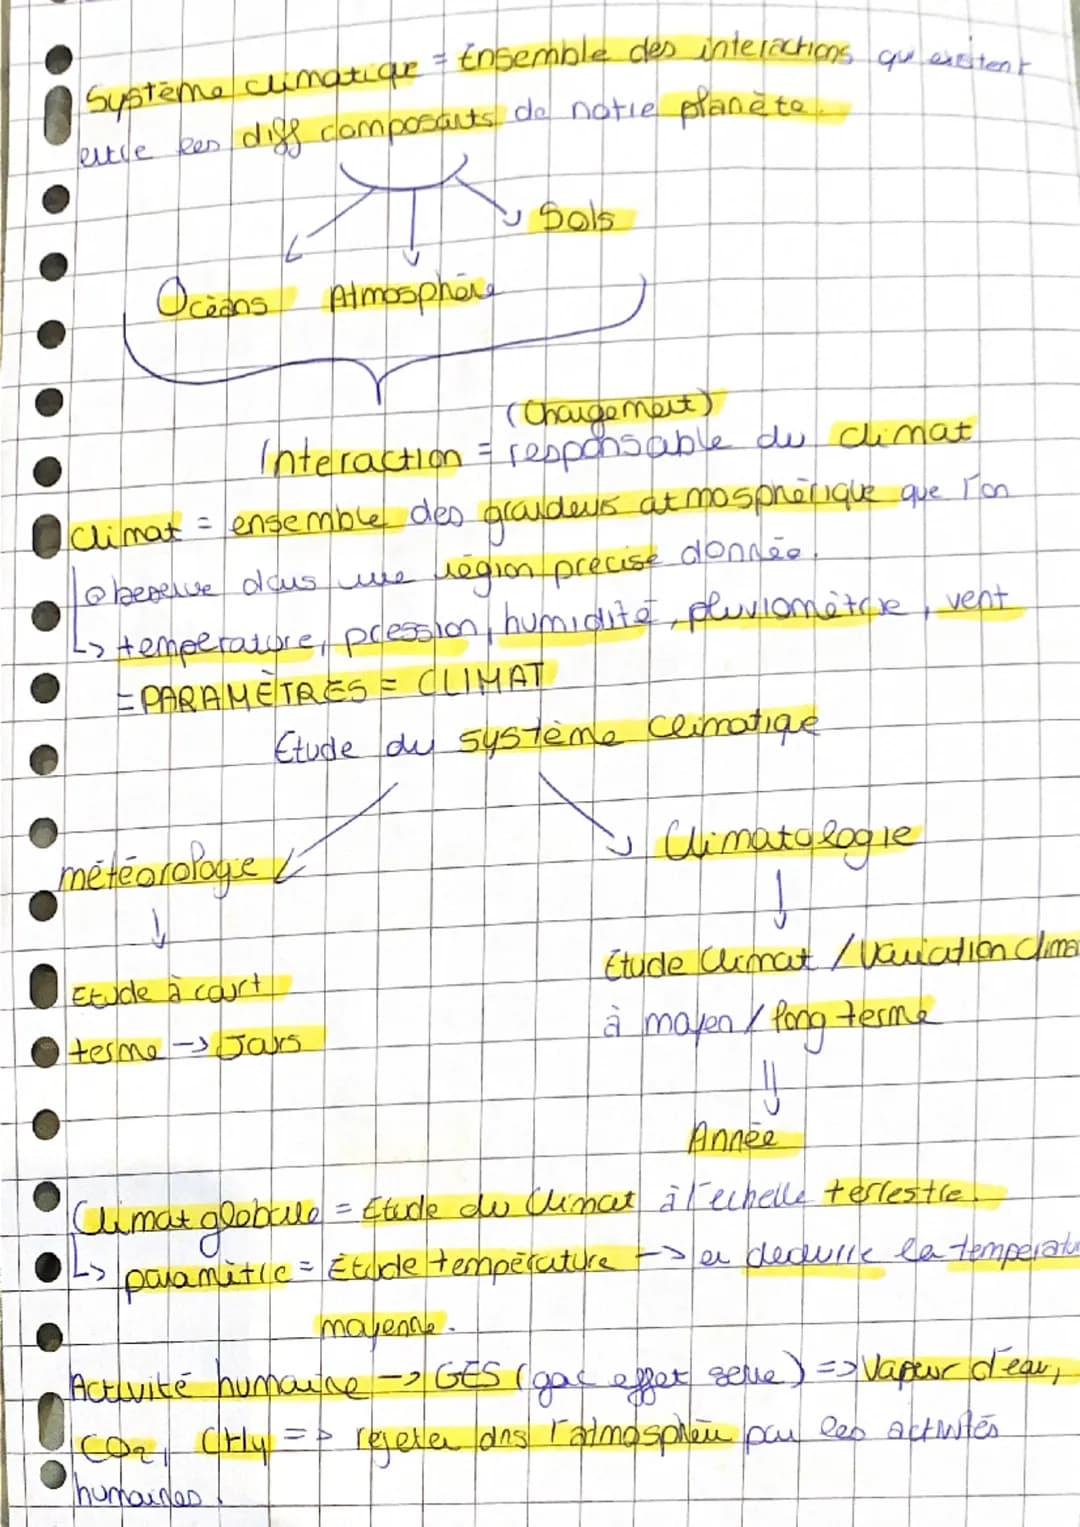 Système climatique = Ensemble des interactions qui existent
entre les diff composants de notre planète.
Sols
Océans Atmosphère
(Changement)
Interaction = responsable du climat
Climat = ensemble des grandeurs atmosphérique que l'on
observe dans une région précise donnée.
↳ température, pression, humidité, pluviomètrie, vent
= PARAMÈTRES = CLIMAT
Etude du système climatique
météorologie Climatologie
Etude Climat / Variation clima
Etude à court
à moyen / long terme
terme → Jours
Année
Climat globale = Etude du Climat à l'echelle terrestre.
↳ paramètre = Etude température → en deduire la temperatu
moyenne.
Activité humaine → GES (gaz effet serre) => Vapeur d'eau,
CO2, CH4 => rejeter dns l'atmosphère par les activités
humaines.